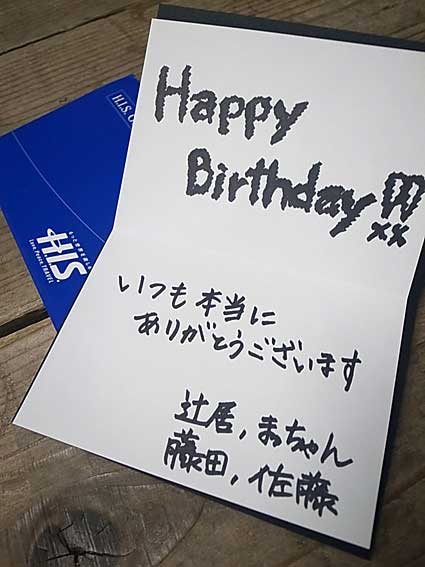 Happy
Birthday!!
xx
いつも本当に
ありがとうございます
辻居,まちゃん
藤田,佐藤
H.I.S.
H.I.S.
Love, Peace, TRAVEL